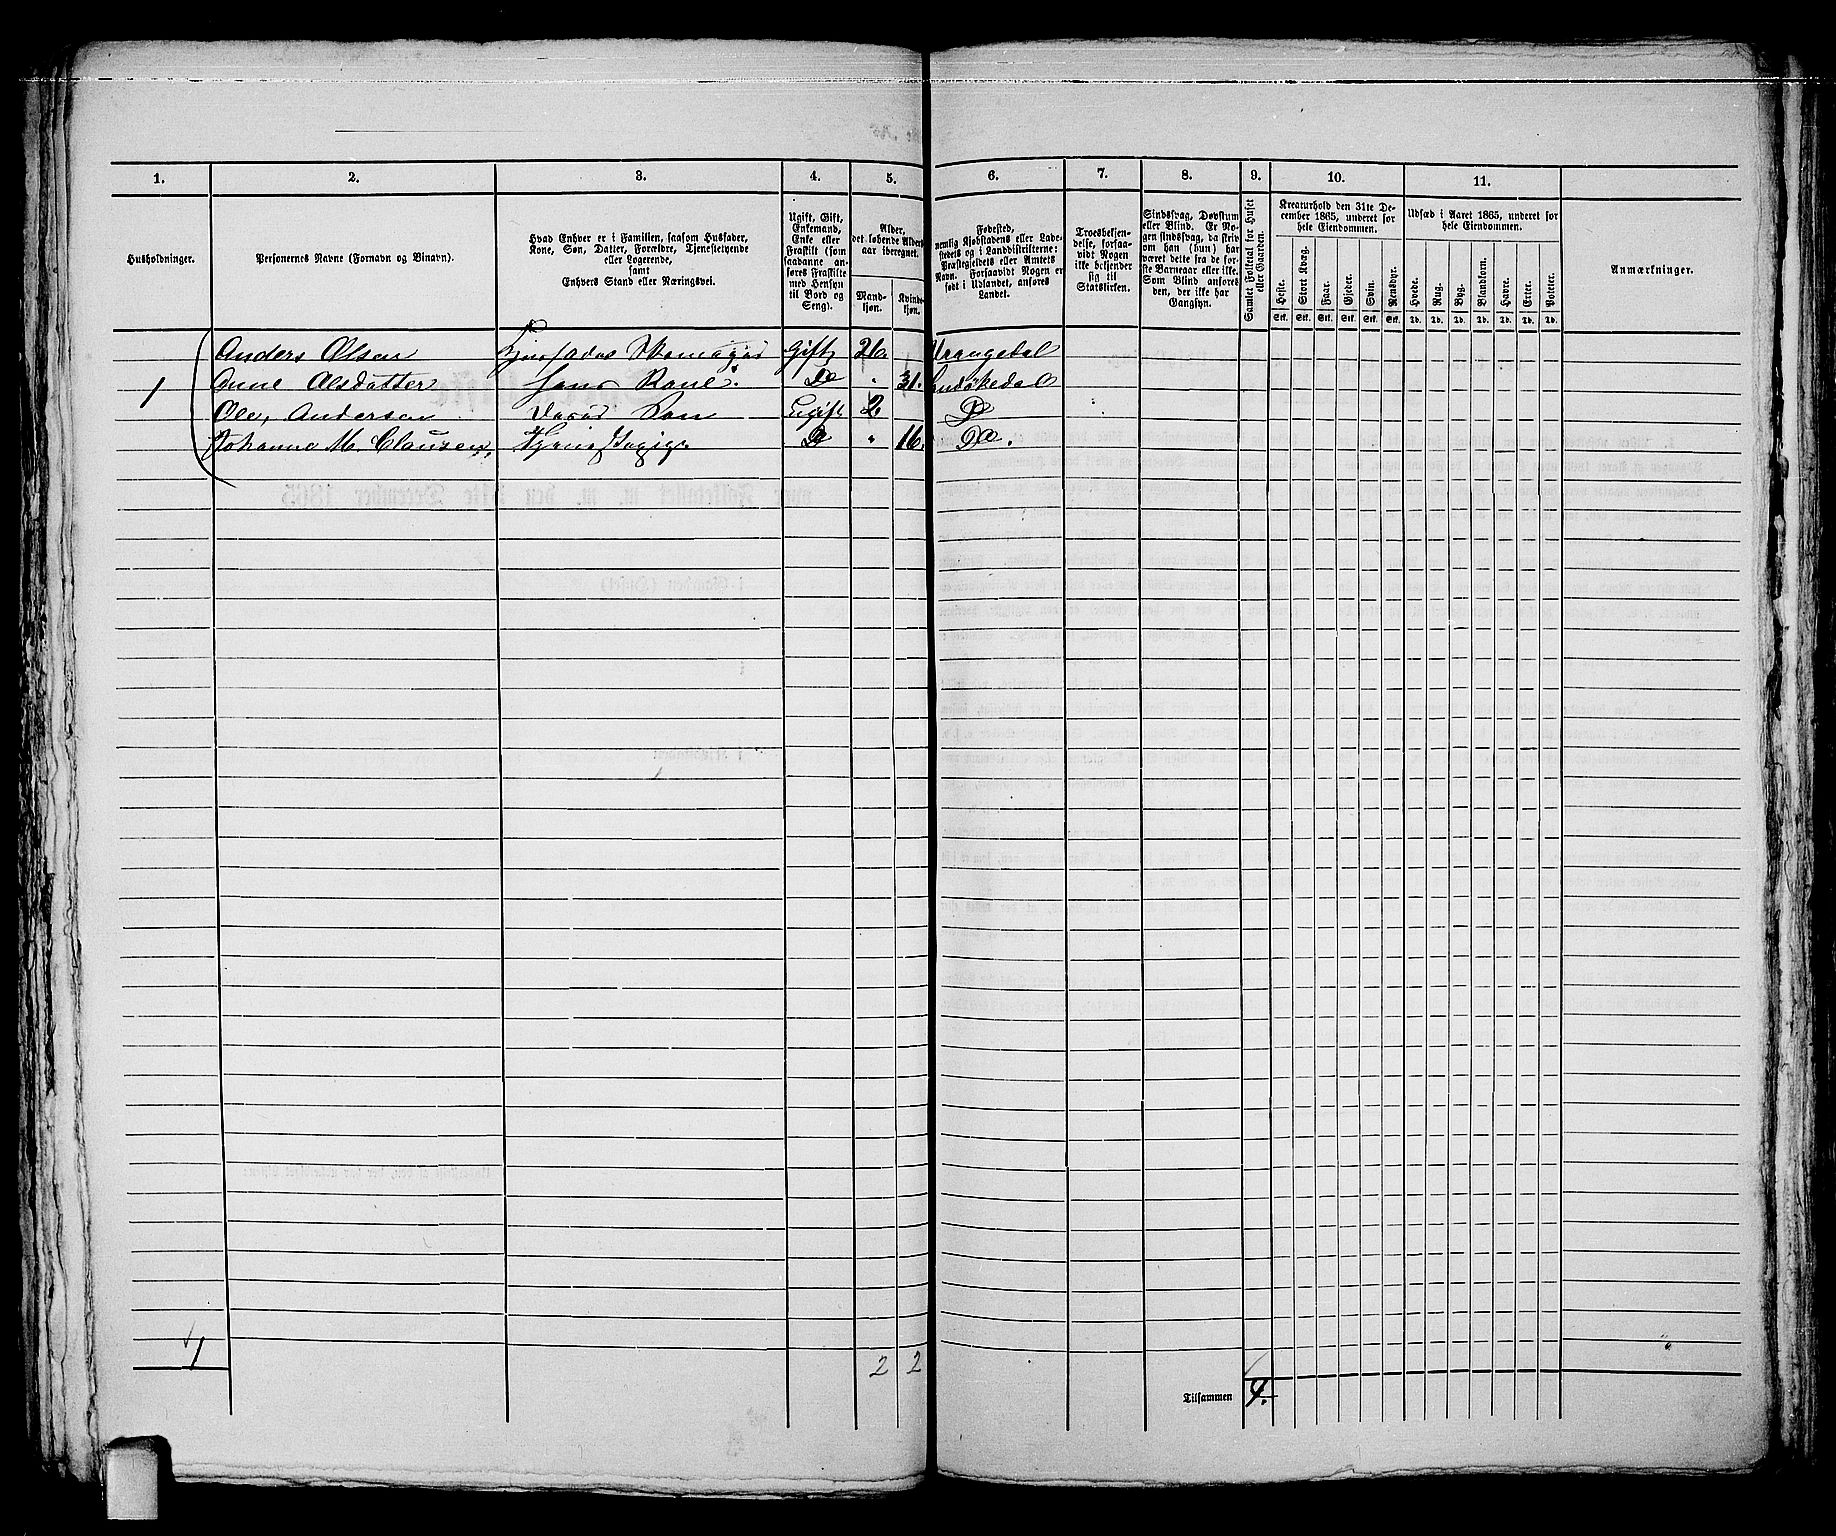 1. 2. 3. 4. 5. 6. 7. 8. 9. 10. 11.
Husholdninger.
Personernes Navne (Fornavn og Binavn).
Hvad Enhver er i Familien, saasom Husfader,
Kone, Søn, Datter, Forældre, Tjenestetyende
eller Logerende,
samt
Enhvers Stand eller Næringsvei.
Ugift, Gift,
Enkemand,
Enke eller
Fraskilt (som
saadanne an-
føres Fraskilte
med Hensyn
til Bord og
Seng).
Alder,
det løbende Alders-
aar iberegnet.
Mand-
kjøn.
Kvinde-
kjøn.
Fødested,
nemlig Kjøbstadens eller Lade-
stedets og i Landdistrikterne:
Præstegjeldets eller Amtets
Navn. Forsaavidt Nogen er
født i Udlandet, anføres
Landet.
Troesbekjen-
delse, forsaa-
vidt Nogen
ikke bekjender
sig til
Statskirken.
Sindssvag, Døvstum
eller Blind. Er No-
gen sindssvag, da skriv
om han (hun) har
været dette fra de før-
ste Barneaar eller ikke.
Som Blind anføres
den, der ikke har
Gangsyn.
Samlet Folketal for Huset
eller Gaarden.
Kreaturhold den 31te De-
cember 1865, underet for
hele Eiendommen.
Heste. Stort Kvæg. Faar. Gjeder. Sviin. Rensdyr.
Stk. Stk. Stk. Stk. Stk. Stk.
Udsæd i Aaret 1865, underet for
hele Eiendommen.
Hvede. Rug. Byg. Blandkorn. Havre. Erter. Poteter.
Td. Td. Td. Td. Td. Td. Td.
Anmærkninger.
Anders Olsen Gift 26
1 Anne Olsdatter hans Kone. Do " 31.
Ole, Andersen Søn Ugift 2 Do
Johanne M. Clausen, Do " 16. Do.
1 2 2
Tilsammen 4.